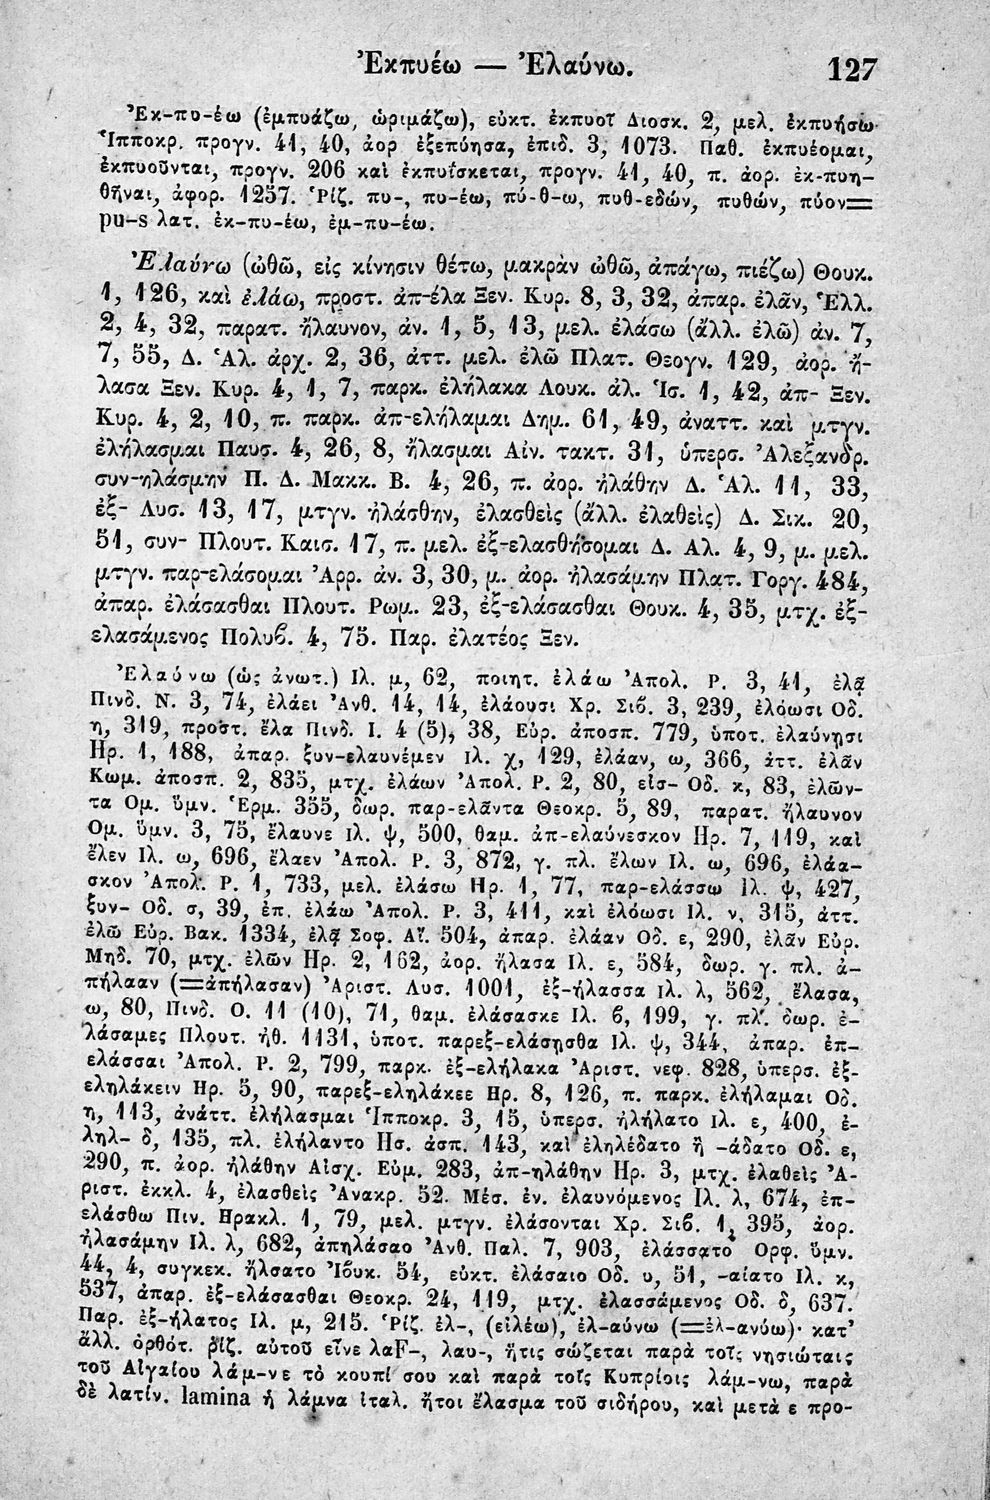 Ἐκπυέω — Ἐλαύνω. 127
Ἐκ-πυ-έω (ἐμπυάζω, ὡριμάζω), εὐκτ. ἐκπυοῖ Διοσκ. 2, μελ. ἐκπυήσω
Ἱπποκρ. προγν. 41, 40, ἀορ ἐξεπύησα, ἐπιδ. 3, 1073. Παθ. ἐκπυέομαι,
ἐκπυοῦνται, προγν. 206 καὶ ἐκπυΐσκεται, προγν. 41, 40, π. ἀορ. ἐκ-πυη-
θῆναι, ἀφορ. 1257. Ῥίζ. πυ-, πυ-έω, πύ-θ-ω, πυθ-εδών, πυθών, πύον=
pu-s λατ. ἐκ-πυ-έω, ἐμ-πυ-έω.
Ἐλαύνω (ὠθῶ, εἰς κίνησιν θέτω, μακρὰν ὠθῶ, ἀπάγω, πιέζω) Θουκ.
1, 126, καὶ ἐλάω, προστ. ἀπ-έλα Ξεν. Κυρ. 8, 3, 32, ἀπαρ. ἐλᾶν, Ἑλλ.
2, 4, 32, παρατ. ἤλαυνον, ἀν. 1, 5, 13, μελ. ἐλάσω (ἄλλ. ἐλῶ) ἀν. 7,
7, 55, Δ. Ἁλ. ἀρχ. 2, 36, ἀττ. μελ. ἐλῶ Πλατ. Θεογν. 129, ἀορ. ἤ-
λασα Ξεν. Κυρ. 4, 1, 7, παρκ. ἐλήλακα Λουκ. ἀλ. Ἱσ. 1, 42, ἀπ- Ξεν.
Κυρ. 4, 2, 10, π. παρκ. ἀπ-ελήλαμαι Δημ. 61, 49, ἀναττ. καὶ μτγν.
ἐλήλασμαι Παυσ. 4, 26, 8, ἤλασμαι Αἰν. τακτ. 31, ὑπερσ. Ἀλεξανδρ.
συν-ηλάσμην Π. Δ. Μακκ. Β. 4, 26, π. ἀορ. ἠλάθην Δ. Ἁλ. 11, 33,
ἐξ- Λυσ. 13, 17, μτγν. ἠλάσθην, ἐλασθεὶς (ἄλλ. ἐλαθεὶς) Δ. Σικ. 20,
51, συν- Πλουτ. Καισ. 17, π. μελ. ἐξ-ελασθήσομαι Δ. Αλ. 4, 9, μ. μελ.
μτγν. παρ-ελάσομαι Ἀρρ. ἀν. 3, 30, μ. ἀορ. ἠλασάμην Πλατ. Γοργ. 484,
ἀπαρ. ἐλάσασθαι Πλουτ. Ρωμ. 23, ἐξ-ελάσασθαι Θουκ. 4, 35, μτχ. ἐξ-
ελασάμενος Πολυβ. 4, 75. Παρ. ἐλατέος Ξεν.
Ἐλαύνω (ὡς ἀνωτ.) Ιλ. μ, 62, ποιητ. ἐλάω Ἀπολ. Ρ. 3, 41, ἐλᾷ
Πινδ. Ν. 3, 74, ἐλάει Ἀνθ. 14, 14, ἐλάουσι Χρ. Σιβ. 3, 239, ἐλόωσι Οδ.
η, 319, προστ. ἔλα Πινδ. Ι. 4 (5), 38, Εὐρ. ἀποσπ. 779, ὑποτ. ἐλαύνῃσι
Ηρ. 1, 188, ἀπαρ. ξυν-ελαυνέμεν Ιλ. χ, 129, ἐλάαν, ω, 366, ἀττ. ἐλᾶν
Κωμ. ἀποσπ. 2, 835, μτχ. ἐλάων Ἀπολ. Ρ. 2, 80, εἰσ- Οδ. κ, 83, ἐλῶν-
τα Ομ. ὕμν. Ἑρμ. 355, δωρ. παρ-ελᾶντα Θεοκρ. 5, 89, παρατ. ἤλαυνον
Ομ. ὕμν. 3, 75, ἔλαυνε Ιλ. ψ, 500, θαμ. ἀπ-ελαύνεσκον Ηρ. 7, 119, καὶ
ἔλεν Ιλ. ω, 696, ἔλαεν Ἀπολ. Ρ. 3, 872, γ. πλ. ἔλων Ιλ. ω, 696, ἐλάα-
σκον Ἀπολ. Ρ. 1, 733, μελ. ἐλάσω Ηρ. 1, 77, παρ-ελάσσω Ιλ. ψ, 427,
ξυν- Οδ. σ, 39, ἐπ. ἐλάω Ἀπολ. Ρ. 3, 411, καὶ ἐλόωσι Ιλ. ν, 315, ἀττ.
ἐλῶ Εὐρ. Βακ. 1334, ἐλᾷ Σοφ. Αἴ. 504, ἀπαρ. ἐλάαν Οδ. ε, 290, ἐλᾶν Εὐρ.
Μηδ. 70, μτχ. ἐλῶν Ηρ. 2, 162, ἀορ. ἤλασα Ιλ. ε, 584, δωρ. γ. πλ. ἀ-
πήλααν (=ἀπήλασαν) Ἀριστ. Λυσ. 1001, ἐξ-ήλασσα Ιλ. λ, 562, ἔλασα,
ω, 80, Πινδ. Ο. 11 (10), 71, θαμ. ἐλάσασκε Ιλ. β, 199, γ. πλ. δωρ. ἐ-
λάσαμες Πλουτ. ἠθ. 1131, ὑποτ. παρεξ-ελάσῃσθα Ιλ. ψ, 344, ἀπαρ. ἐπ-
ελάσσαι Ἀπολ. Ρ. 2, 799, παρκ. ἐξ-ελήλακα Ἀριστ. νεφ. 828, ὑπερσ. ἐξ-
εληλάκειν Ηρ. 5, 90, παρεξ-εληλάκεε Ηρ. 8, 126, π. παρκ. ἐλήλαμαι Οδ.
η, 113, ἀνάττ. ἐλήλασμαι Ἱπποκρ. 3, 15, ὑπερσ. ἠλήλατο Ιλ. ε, 400, ἐ-
ληλ- δ, 135, πλ. ἐλήλαντο Ησ. ἀσπ. 143, καὶ ἐληλέδατο ἢ -άδατο Οδ. ε,
290, π. ἀορ. ἠλάθην Αἰσχ. Εὐμ. 283, ἀπ-ηλάθην Ηρ. 3, μτχ. ἐλαθεὶς Ἀ-
ριστ. ἐκκλ. 4, ἐλασθεὶς Ἀνακρ. 52. Μέσ. ἐν. ἐλαυνόμενος Ιλ. λ, 674, ἐπ-
ελάσθω Πιν. Ηρακλ. 1, 79, μελ. μτγν. ἐλάσονται Χρ. Σιβ. 1, 395, ἀορ.
ἠλασάμην Ιλ. λ, 682, ἀπηλάσαο Ἀνθ. Παλ. 7, 903, ἐλάσσατο Ορφ. ὕμν.
44, 4, συγκεκ. ἤλσατο Ἰβυκ. 54, εὐκτ. ἐλάσαιο Οδ. υ, 51, -αίατο Ιλ. κ,
537, ἀπαρ. ἐξ-ελάσασθαι Θεοκρ. 24, 119, μτχ. ἐλασσάμενος Οδ. δ, 637.
Παρ. ἐξ-ήλατος Ιλ. μ, 215. Ῥίζ. ἐλ-, (εἰλέω), ἐλ-αύνω (=ἐλ-ανύω)· κατ'
ἄλλ. ὀρθότ. ῥίζ. αὐτοῦ εἶνε λαϜ-, λαυ-, ἥτις σώζεται παρὰ τοῖς νησιώταις
τοῦ Αἰγαίου λάμ-νε τὸ κουπί σου καὶ παρὰ τοῖς Κυπρίοις λάμ-νω, παρὰ
δὲ λατίν. lamina ἡ λάμνα ἰταλ. ἤτοι ἔλασμα τοῦ σιδήρου, καὶ μετὰ ε προ-